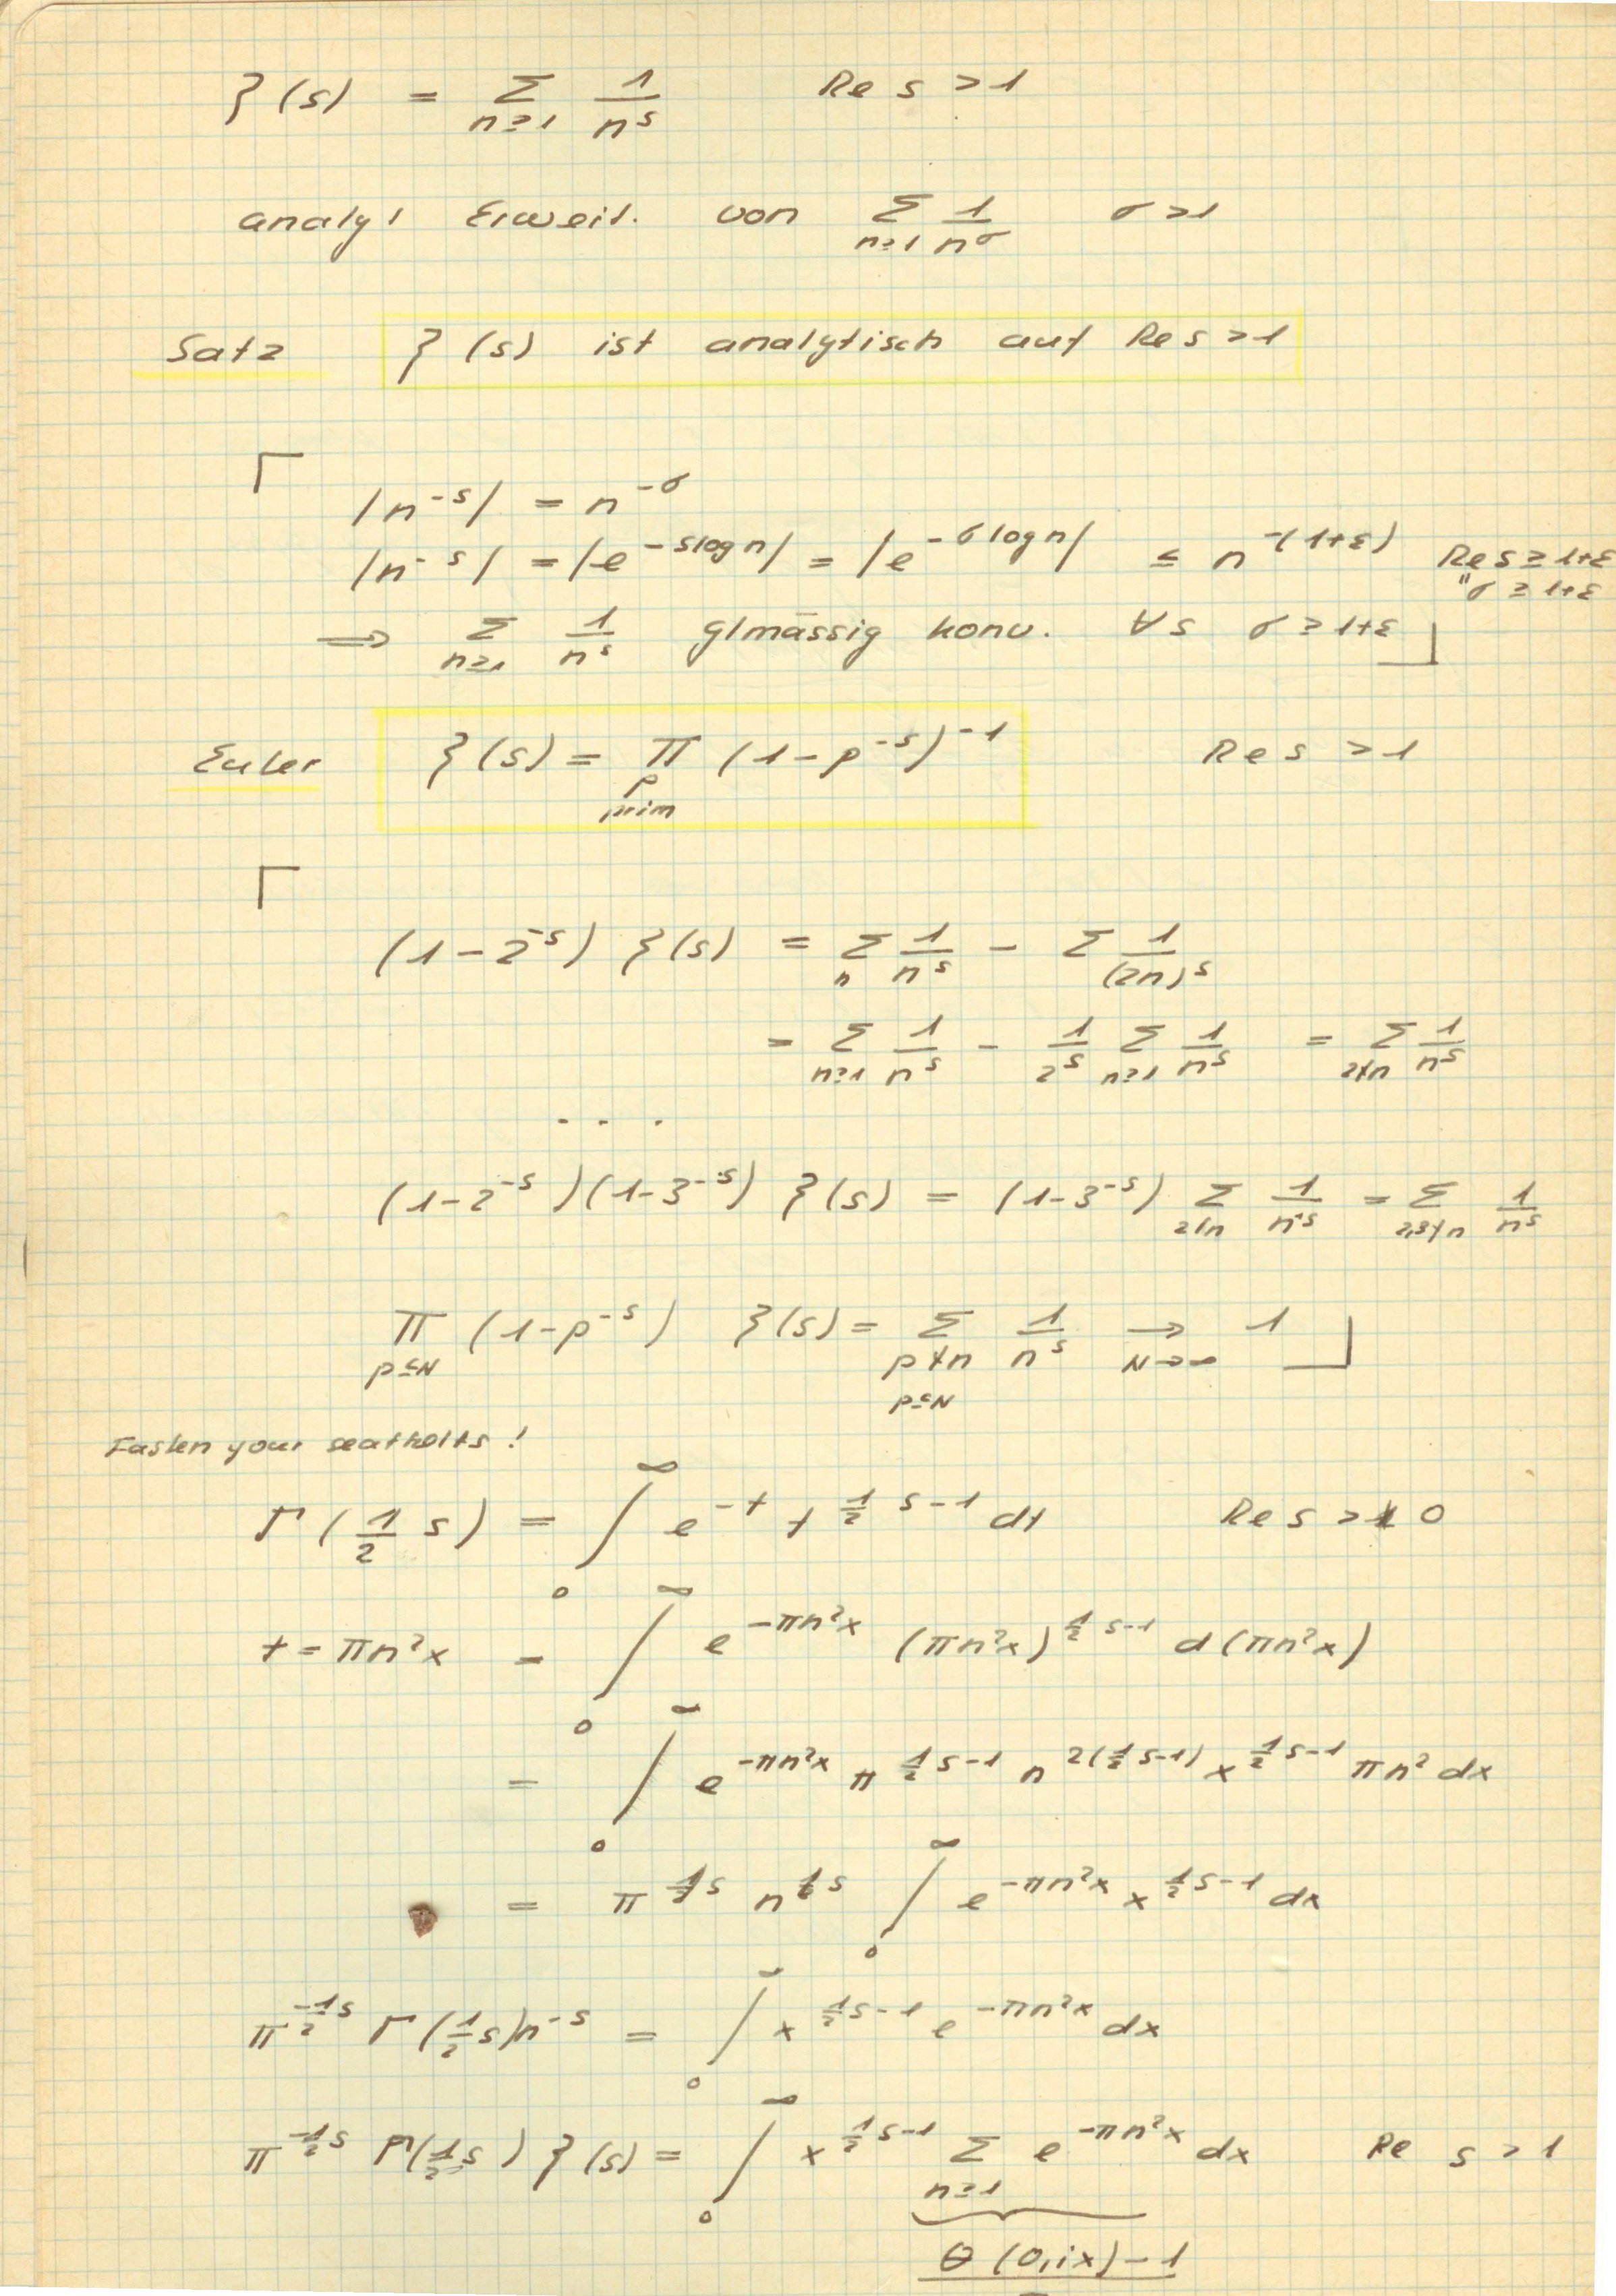 ζ(s) = Σ_{n≥1} 1/n^s   Re s > 1
analyt Erweit. von Σ_{n≥1} 1/n^σ   σ>1
Satz   ζ(s) ist analytisch auf Re s > 1
|n^{-s}| = n^{-σ}
|n^{-s}| = |e^{-s log n}| = |e^{-σ log n}| ≤ n^{-(1+ε)}   Re s ≥ 1+ε
" σ ≥ 1+ε
⟹ Σ_{n≥1} 1/n^s glmässig konv. ∀s σ ≥ 1+ε
Euler   ζ(s) = Π_{p prim} (1-p^{-s})^{-1}   Re s > 1
(1-2^{-s}) ζ(s) = Σ_n 1/n^s - Σ 1/(2n)^s
= Σ_{n≥1} 1/n^s - 1/2^s Σ_{n≥1} 1/n^s = Σ_{2∤n} 1/n^s
. . .
(1-2^{-s})(1-3^{-s}) ζ(s) = (1-3^{-s}) Σ_{2∤n} 1/n^s = Σ_{2,3∤n} 1/n^s
Π_{p≤N} (1-p^{-s}) ζ(s) = Σ_{p∤n, p≤N} 1/n^s →_{N→∞} 1
Fasten your seatbelts!
Γ(1/2 s) = ∫_0^∞ e^{-t} t^{1/2 s-1} dt   Re s > 0
t = πn²x   = ∫_0^∞ e^{-πn²x} (πn²x)^{1/2 s-1} d(πn²x)
= ∫_0^∞ e^{-πn²x} π^{1/2 s-1} n^{2(1/2 s-1)} x^{1/2 s-1} πn² dx
= π^{1/2 s} n^s ∫_0^∞ e^{-πn²x} x^{1/2 s-1} dx
π^{-1/2 s} Γ(1/2 s) n^{-s} = ∫_0^∞ x^{1/2 s-1} e^{-πn²x} dx
π^{-1/2 s} Γ(1/2 s) ζ(s) = ∫_0^∞ x^{1/2 s-1} Σ_{n≥1} e^{-πn²x} dx   Re s > 1
θ(0,ix)-1